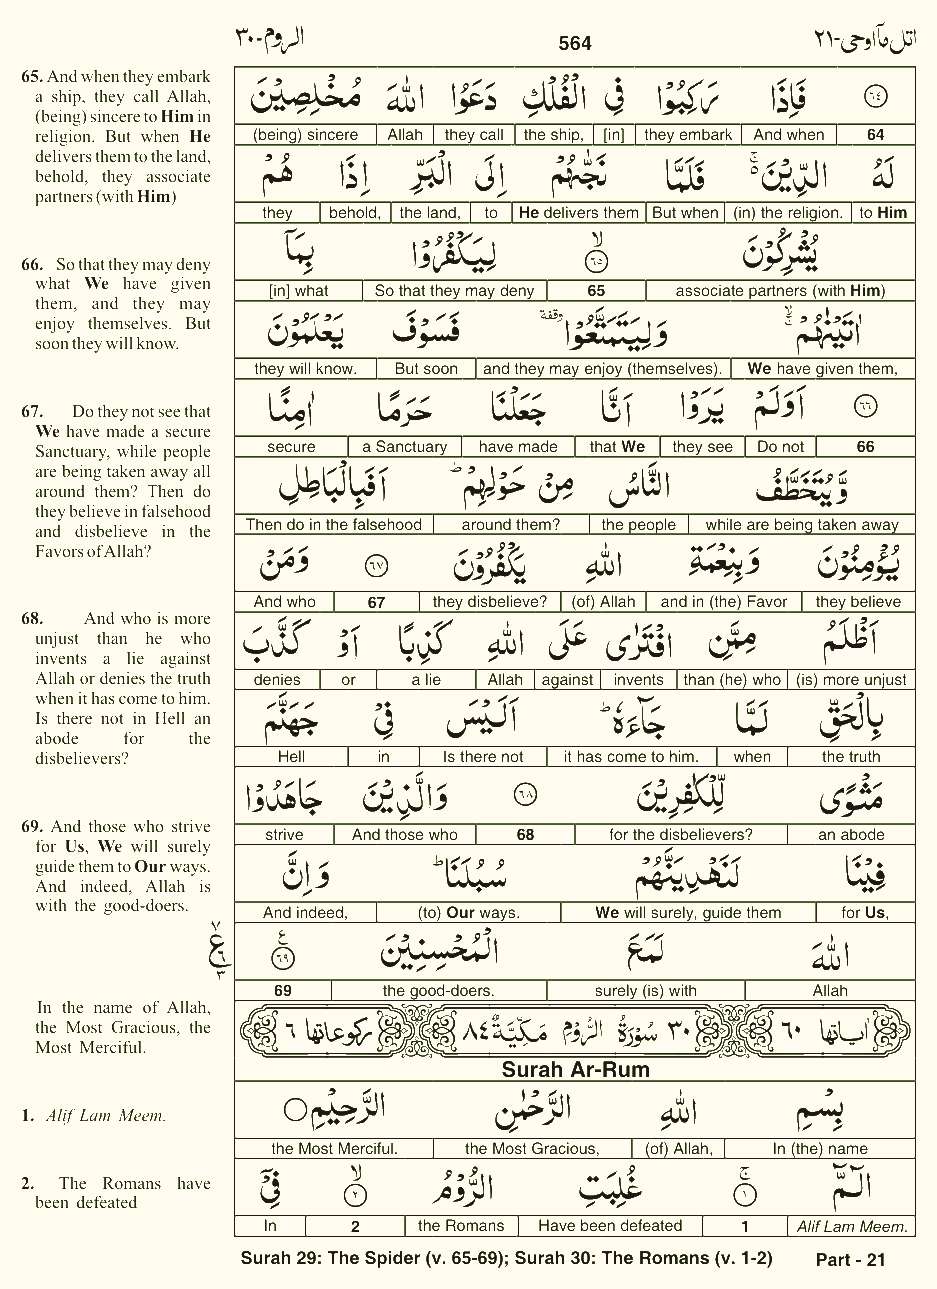 اتل مآ اوحی-٢١
564
الروم-٣٠
65. And when they embark
a ship, they call Allah,
(being) sincere to Him in
religion. But when He
delivers them to the land,
behold, they associate
partners (with Him)
66. So that they may deny
what We have given
them, and they may
enjoy themselves. But
soon they will know.
67. Do they not see that
We have made a secure
Sanctuary, while people
are being taken away all
around them? Then do
they believe in falsehood
and disbelieve in the
Favors of Allah?
68. And who is more
unjust than he who
invents a lie against
Allah or denies the truth
when it has come to him.
Is there not in Hell an
abode for the
disbelievers?
69. And those who strive
for Us, We will surely
guide them to Our ways.
And indeed, Allah is
with the good-doers.
٧
ع
٦
٣
In the name of Allah,
the Most Gracious, the
Most Merciful.
1. Alif Lam Meem.
2. The Romans have
been defeated
٦٤ فَاِذَا رَكِبُوْا فِي الْفُلْكِ دَعَوُا اللّٰهَ مُخْلِصِيْنَ
64 And when they embark [in] the ship, they call Allah (being) sincere
لَهُ الدِّيْنَ ۚ۬ فَلَمَّا نَجّٰىهُمْ اِلَى الْبَرِّ اِذَا هُمْ
to Him (in) the religion. But when He delivers them to the land, behold, they
يُشْرِكُوْنَ ٦٥ ۙ لِيَكْفُرُوْا بِمَآ
associate partners (with Him) 65 So that they may deny [in] what
اٰتَيْنٰهُمْ ۙۚ وَلِيَتَمَتَّعُوْا ۥ وقفة فَسَوْفَ يَعْلَمُوْنَ
We have given them, and they may enjoy (themselves). But soon they will know.
٦٦ اَوَلَمْ يَرَوْا اَنَّا جَعَلْنَا حَرَمًا اٰمِنًا
66 Do not they see that We have made a Sanctuary secure
وَّيُتَخَطَّفُ النَّاسُ مِنْ حَوْلِهِمْ ؕ اَفَبِالْبَاطِلِ
while are being taken away the people around them? Then do in the falsehood
يُؤْمِنُوْنَ وَبِنِعْمَةِ اللّٰهِ يَكْفُرُوْنَ ٦٧ وَمَنْ
they believe and in (the) Favor (of) Allah they disbelieve? 67 And who
اَظْلَمُ مِمَّنِ افْتَرٰى عَلَى اللّٰهِ كَذِبًا اَوْ كَذَّبَ
(is) more unjust than (he) who invents against Allah a lie or denies
بِالْحَقِّ لَمَّا جَآءَهٗ ؕ اَلَيْسَ فِيْ جَهَنَّمَ
the truth when it has come to him. Is there not in Hell
مَثْوًى لِّلْكٰفِرِيْنَ ٦٨ وَالَّذِيْنَ جَاهَدُوْا
an abode for the disbelievers? 68 And those who strive
فِيْنَا لَنَهْدِيَنَّهُمْ سُبُلَنَا ؕ وَاِنَّ
for Us, We will surely, guide them (to) Our ways. And indeed,
اللّٰهَ لَمَعَ الْمُحْسِنِيْنَ ٦٩ ع
Allah surely (is) with the good-doers. 69
اٰياتها ٦٠ ٣٠ سُوْرَةُ الرُّوْمِ مَكِّيَّةٌ ٨٤ ركوعاتها ٦
Surah Ar-Rum
بِسْمِ اللّٰهِ الرَّحْمٰنِ الرَّحِيْمِ
In (the) name (of) Allah, the Most Gracious, the Most Merciful.
الٓمّٓ ١ ۚ غُلِبَتِ الرُّوْمُ ٢ ۙ فِيْٓ
Alif Lam Meem. 1 Have been defeated the Romans 2 In
Surah 29: The Spider (v. 65-69); Surah 30: The Romans (v. 1-2) Part - 21